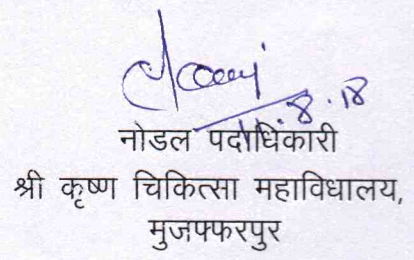 8.18
नोडल पदाधिकारी
श्री कृष्ण चिकित्सा महाविधालय,
मुजफ्फरपुर